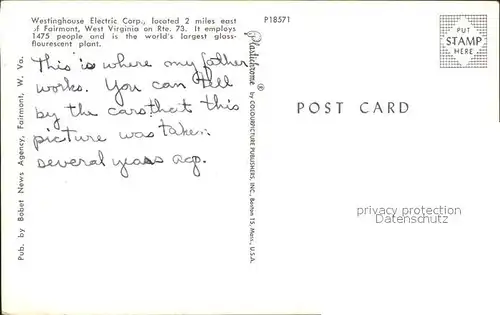 Westinghouse Electric Corp., located 2 miles east
of Fairmont, West Virginia on Rte. 73. It employs
1475 people and is the world's largest glass-
flourescent plant.
This is where my father
works. You can tell
by the cars that this
picture was taken
several years ago.
Pub. by Bobet News Agency, Fairmont, W. Va.
P18571
Plastichrome ® by COLOURPICTURE PUBLISHERS, INC., Boston 15, Mass., U.S.A.
POST CARD
PUT
STAMP
HERE
privacy protection
Datenschutz